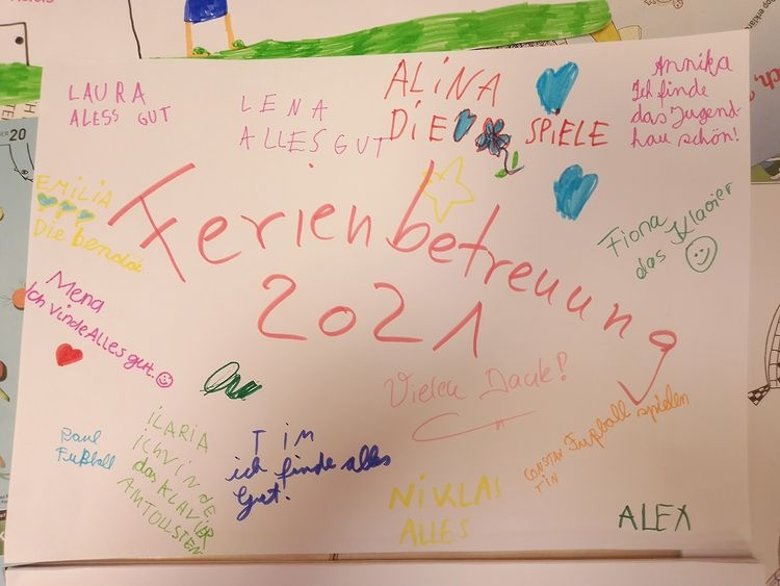 LAURA
ALESS GUT
LENA
ALLES GUT
ALINA
DIE SPIELE
Annika
Ich finde
das Jugend-
hau schön!
EMILIA
Die
Ferienbetreuung
2021
Fiona
das Klavier
Mena
Ich vinde Alles gut.
Vielen Dank!
Paul
Fußball
iLARiA
ichvinde
das KLAViER
AMTOLLSTEN
TiM
ich finde alles
Gut!
NiKLAS
ALLES
CONSTAN
TiN
Fußball spielen
ALEX
20